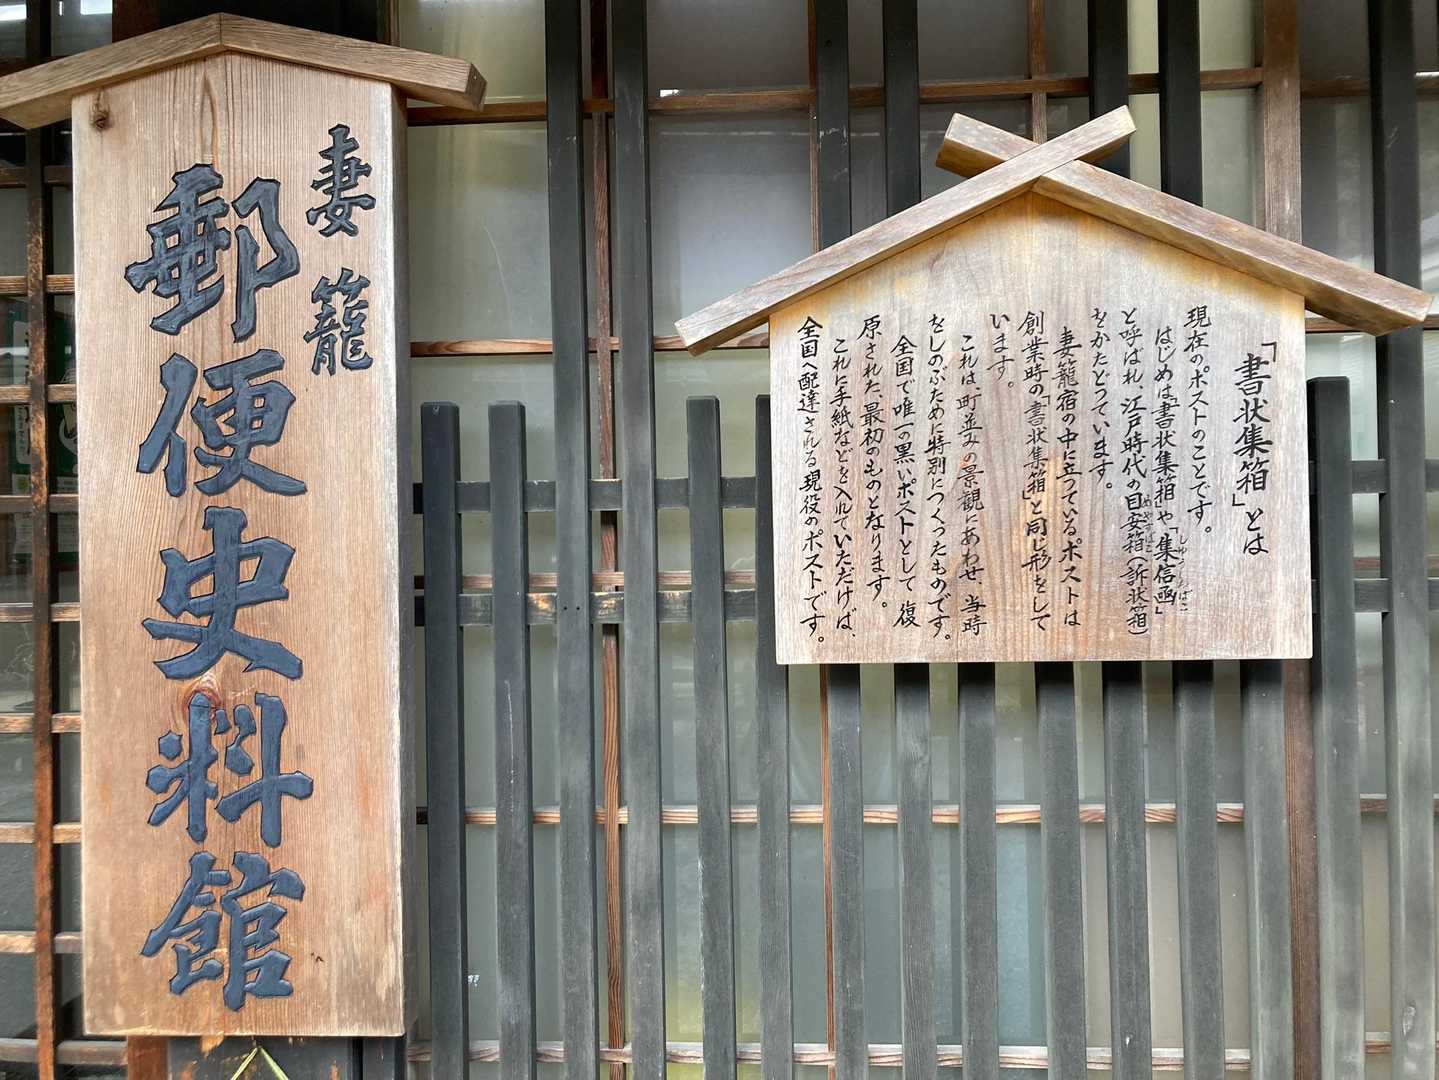 妻籠
郵便史料館
「書状集箱」とは
現在のポストのことです。
はじめは「書状集箱」や「集信函」
と呼ばれ、江戸時代の目安箱(訴状箱)
をかたどっています。
妻籠宿の中に立っているポストは
創業時の「書状集箱」と同じ形をして
います。
これは、町並みの景観にあわせ、当時
をしのぶために特別につくったものです。
全国で唯一の黒いポストとして復
原された、最初のものとなります。
これに手紙などを入れていただけば、
全国へ配達される現役のポストです。